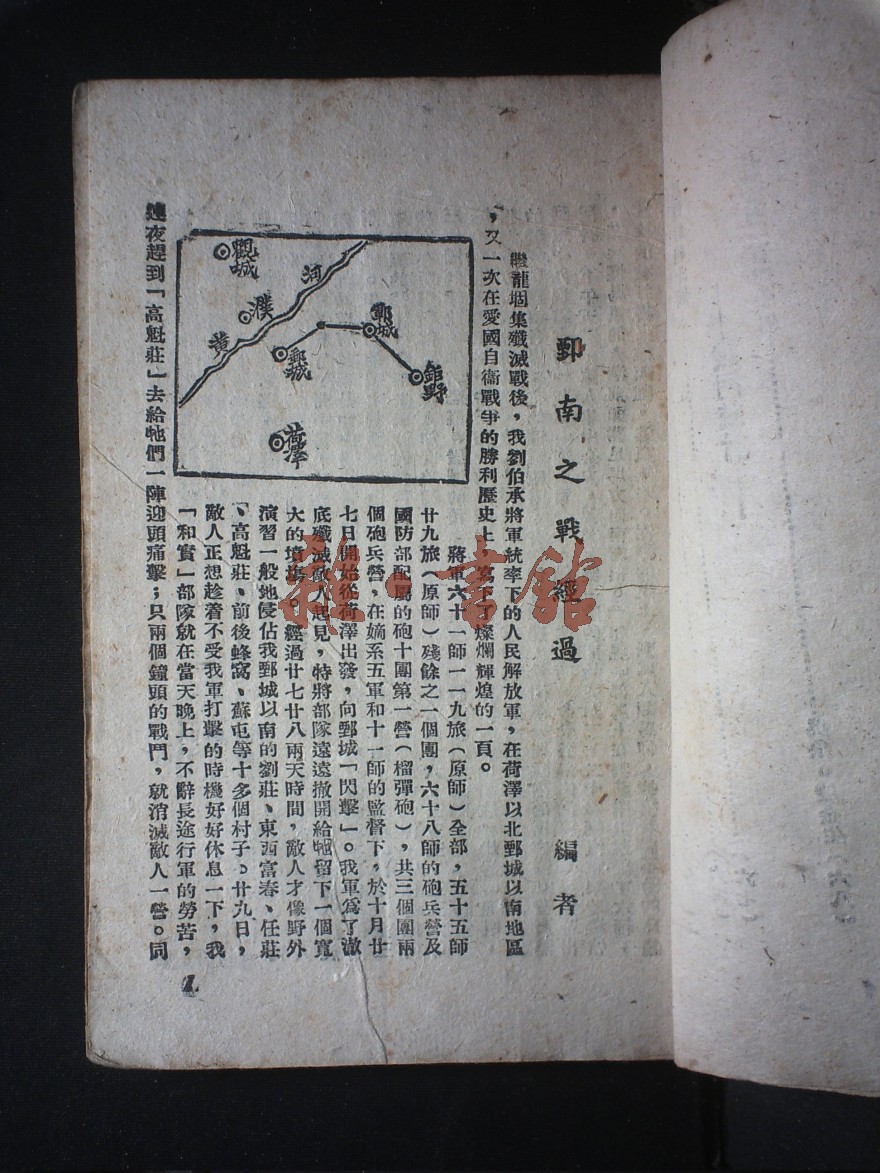 鄄南之戰經過
編者
繼龍堌集殲滅戰後，我劉伯承將軍統率下的人民解放軍，在荷澤以北鄄城以南地區
，又一次在愛國自衞戰爭的勝利歷史上，寫下了燦爛輝煌的一頁。
將軍六十一師一一九旅（原師）全部，五十五師
廿九旅（原師）殘餘之一個團，六十八師的砲兵營及
國防部配屬的砲十團第一營（榴彈砲），共三個團兩
個砲兵營，在嫡系五軍和十一師的監督下，於十月廿
七日開始從荷澤出發，向鄄城「閃擊」。我軍爲了澈
底殲滅敵人起見，特將部隊遠遠撤開給牠留下一個寬
大的墳場。經過廿七廿八兩天時間，敵人才像野外
演習一般地侵佔我鄄城以南的劉莊、東西富春、任莊
、高魁莊、前後蜂窩、蘇屯等十多個村子。廿九日，
敵人正想趁着不受我軍打擊的時機好好休息一下，我
「和實」部隊就在當天晚上，不辭長途行軍的勞苦，
連夜趕到「高魁莊」去給牠們一陣迎頭痛擊；只兩個鐘頭的戰鬥，就消滅敵人一營。同
觀城
濮
河
黃
鄄城
鄆城
鉅野
荷澤
1
雜·書館